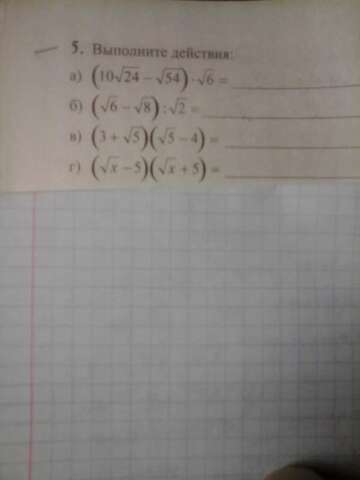 5. Выполните действия:
а) (10√24 − √54) · √6 =
б) (√6 − √8) : √2 =
в) (3 + √5)(√5 − 4) =
г) (√x − 5)(√x + 5) =